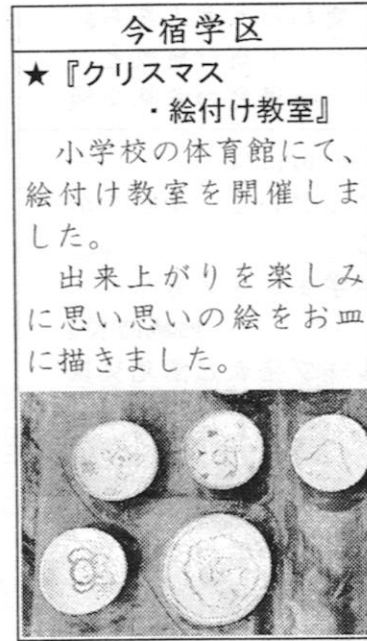 今宿学区
★『クリスマス
・絵付け教室』
小学校の体育館にて、
絵付け教室を開催しま
した。
出来上がりを楽しみ
に思い思いの絵をお皿
に描きました。